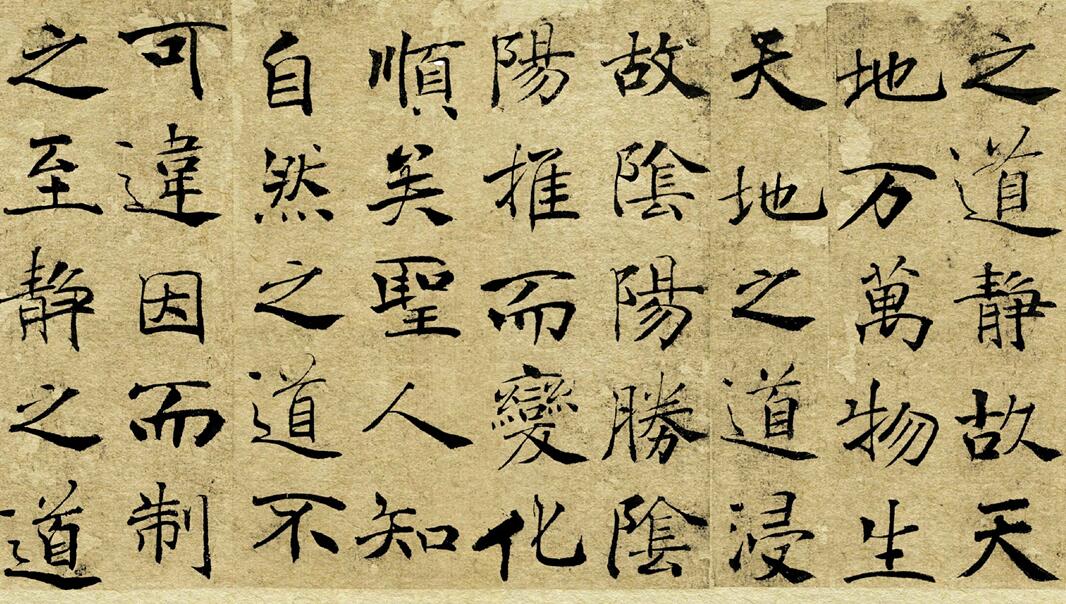 之道静故天
地万萬物生
天地之道浸
故陰陽勝陰
陽推而變化
順矣聖人知
自然之道不
可違因而制
之至静之道